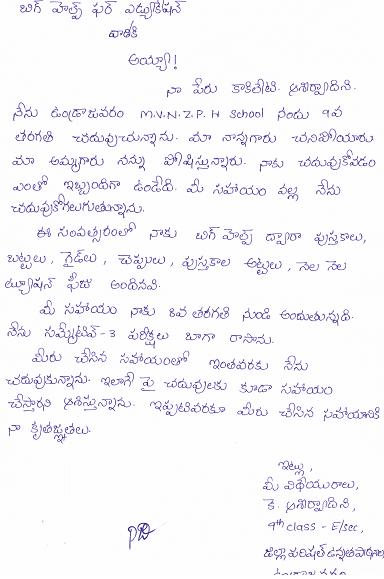 బిగ్ హెల్ప్ ఫర్ ఎడ్యుకేషన్
వారికి
అయ్యా!
నా పేరు కాకిలేటి. ఆశీర్వాదిని.
నేను ఉండ్రాజవరం M.V.N.Z.P.H School నందు 9వ
తరగతి చదువుచున్నాను. మా నాన్నగారు చనిపోయారు
మా అమ్మగారు నన్ను పోషిస్తున్నారు. నాకు చదువుకోవడం
ఎంతో ఇబ్బందిగా ఉండేది. మీ సహాయం వల్ల నేను
చదువుకోగలుగుతున్నాను.
ఈ సంవత్సరంలో నాకు బిగ్ హెల్ప్ ద్వారా పుస్తకాలు,
బట్టలు, గైడ్‌లు, చెప్పులు, పుస్తకాల అట్టలు, నెల నెల
ట్యూషన్ ఫీజు అందినవి.
మీ సహాయం నాకు 8వ తరగతి నుండి అందుతున్నది.
నేను సమ్మేటివ్-3 పరీక్షలు బాగా రాసాను.
మీరు చేసిన సహాయంతో ఇంతవరకు నేను
చదువుకున్నాను. ఇలాగే పై చదువులకు కూడా సహాయం
చేస్తారని ఆశిస్తున్నాను. ఇప్పటివరకూ మీరు చేసిన సహాయానికి
నా కృతజ్ఞతలు.
ఇట్లు,
మీ విధేయురాలు,
కె. ఆశీర్వాదిని,
9th class - E/sec,
జిల్లా పరిషత్ ఉన్నత పాఠశాల,
ఉండ్రాజవరం.